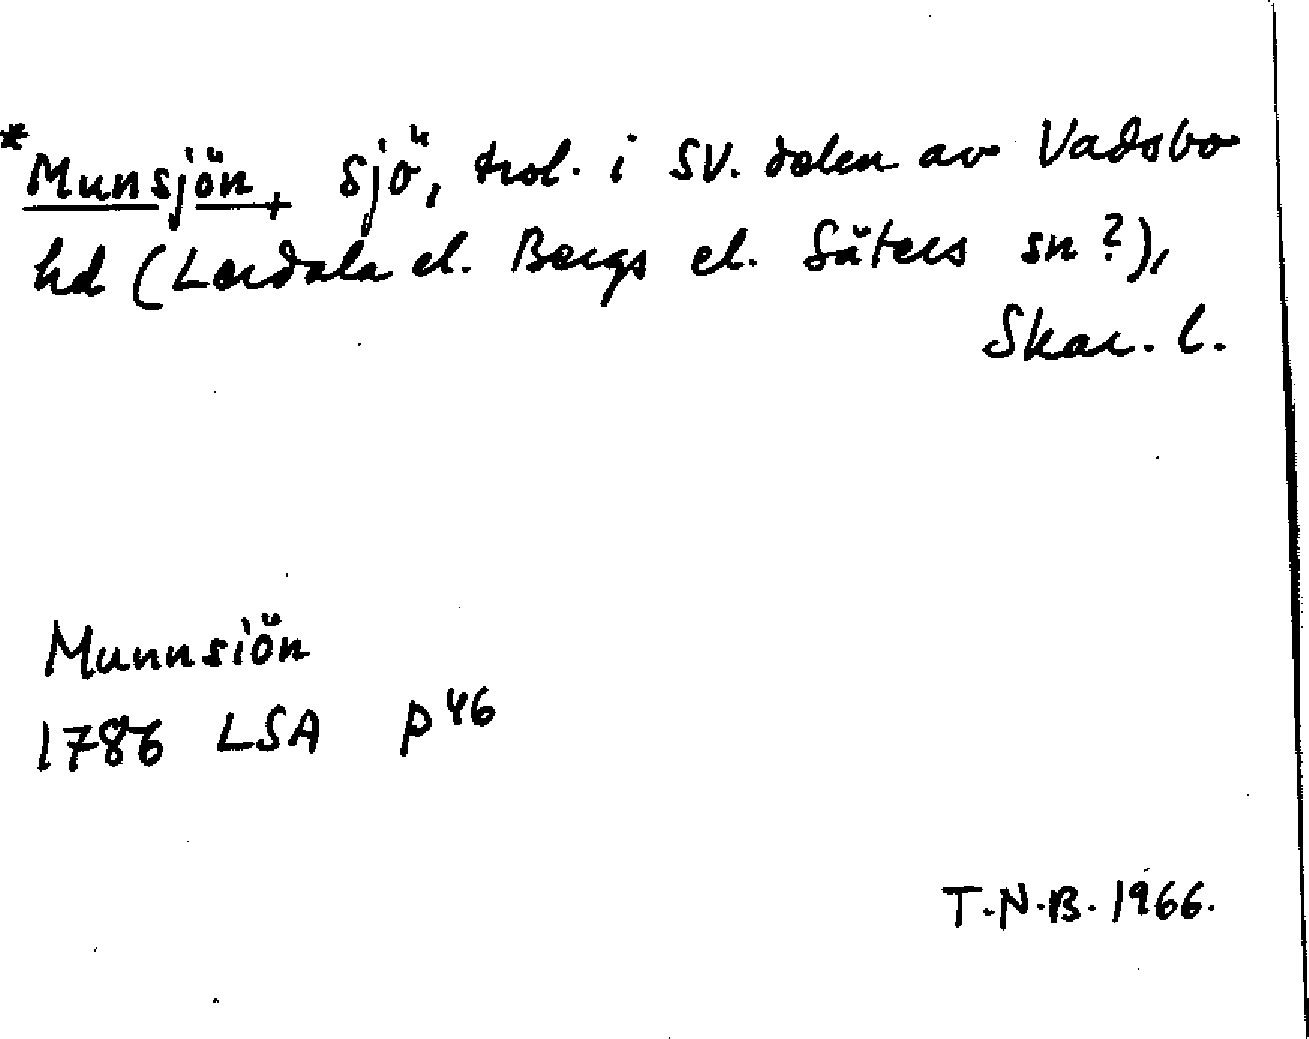 *Munsjön, sjö, trol. i SV. delen av Vadsbo
hd (Lerdala el. Bergs el. Säters sn?),
Skar. l.
Munnsiön
1786 LSA p 46
T.N.B. 1966.